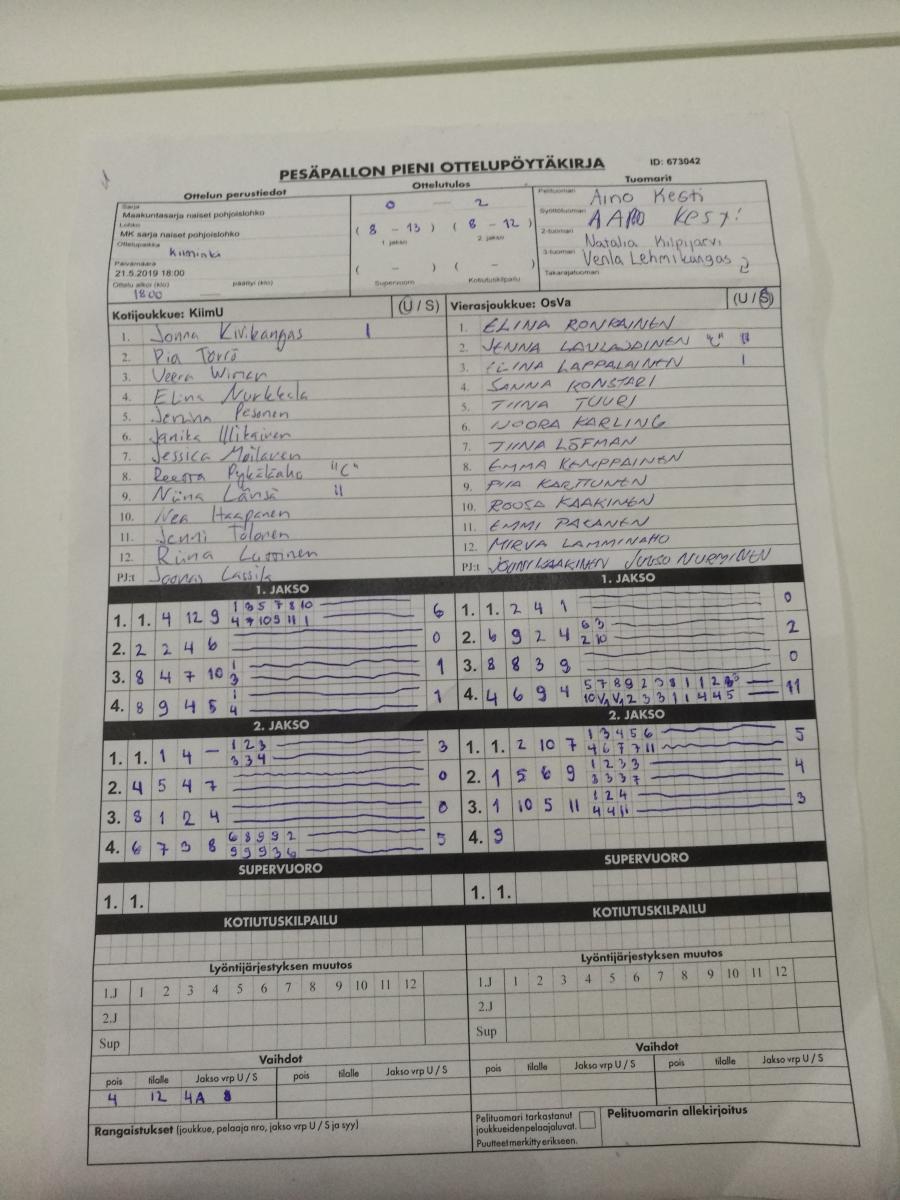 PESÄPALLON PIENI OTTELUPÖYTÄKIRJA ID: 673042
Ottelun perustiedot Ottelutulos Tuomarit
Sarja 0 - 2 Pelituomari Aino Kesti
Maakuntasarja naiset pohjoislohko Syöttötuomari AARO Kesti
Lohko (8 - 13) (8 - 12)
MK sarja naiset pohjoislohko 1. jakso 2. jakso 2-tuomari Natalia Kilpijärvi
Ottelupaikka Kiiminki 3-tuomari Venla Lehmikangas
Päivämäärä ( - ) ( - ) Takarajatuomari
21.5.2019 18:00 Supervuoro Kotiutuskilpailu
Ottelu alkoi (klo) päättyi (klo)
18:00
Kotijoukkue: KiimU (U / S) Vierasjoukkue: OsVa (U / S)
1. Jonna Kivikangas I 1. ELINA RONKAINEN
2. Pia Törrö 2. JENNA LAULAJAINEN "C" II
3. Veera Wiman 3. ELINA LAPPALAINEN I
4. Elina Nurkkala 4. SANNA KONSTARI
5. Jenina Pesonen 5. TIINA TUURI
6. Janika 6. NOORA KARLING
7. Jessica Moilanen 7. TIINA LÖFMAN
8. Reeora Pykäläaho "C" 8. EMMA KEMPPAINEN
9. Niina Länsä II 9. PIIA KARTTUNEN
10. Nea Haapanen 10. ROOSA KAAKINEN
11. Jenni Tolonen 11. EMMI PAKANEN
12. Riina 12. MIRVA LAMMINAHO
PJ:t Joonas PJ:t JOUNI KAAKINEN JUUSO NURMINEN
1. JAKSO 1. JAKSO
1. 1. 4 12 9 1 3 5 7 8 10 6 1. 1. 2 4 1 0
4 7 10 9 11 1
2. 2 2 4 6 0 2. 6 9 2 4 6 3 2
2 10
3. 8 4 7 10 1 1 3. 8 8 3 9 0
3
4. 8 9 4 5 1 1 4. 4 6 9 4 5 7 8 9 2 3 8 1 1 2 11
4 10 V1 V1 2 3 3 1 1 4 4 5
2. JAKSO 2. JAKSO
1. 1. 1 4 - 1 2 3 3 1. 1. 2 10 7 1 3 4 5 6 5
3 3 4 4 6 7 7 11
2. 4 5 4 7 0 2. 1 5 6 9 1 2 3 3 4
3 3 3 7
3. 8 1 2 4 0 3. 1 10 5 11 1 2 4 3
4 4 11
4. 6 7 3 8 6 8 9 9 2 5 4. 9
9 9 9 3 6
SUPERVUORO SUPERVUORO
1. 1. 1. 1.
KOTIUTUSKILPAILU KOTIUTUSKILPAILU
Lyöntijärjestyksen muutos Lyöntijärjestyksen muutos
1.J 1 2 3 4 5 6 7 8 9 10 11 12 1.J 1 2 3 4 5 6 7 8 9 10 11 12
2.J 2.J
Sup Sup
Vaihdot Vaihdot
pois tilalle Jakso vrp U / S pois tilalle Jakso vrp U / S pois tilalle Jakso vrp U / S pois tilalle Jakso vrp U / S
4 12 4A
Rangaistukset (joukkue, pelaaja nro, jakso vrp U / S ja syy) Pelituomari tarkastanut Pelituomarin allekirjoitus
joukkueiden pelaajaluvat.
Puutteet merkitty erikseen.